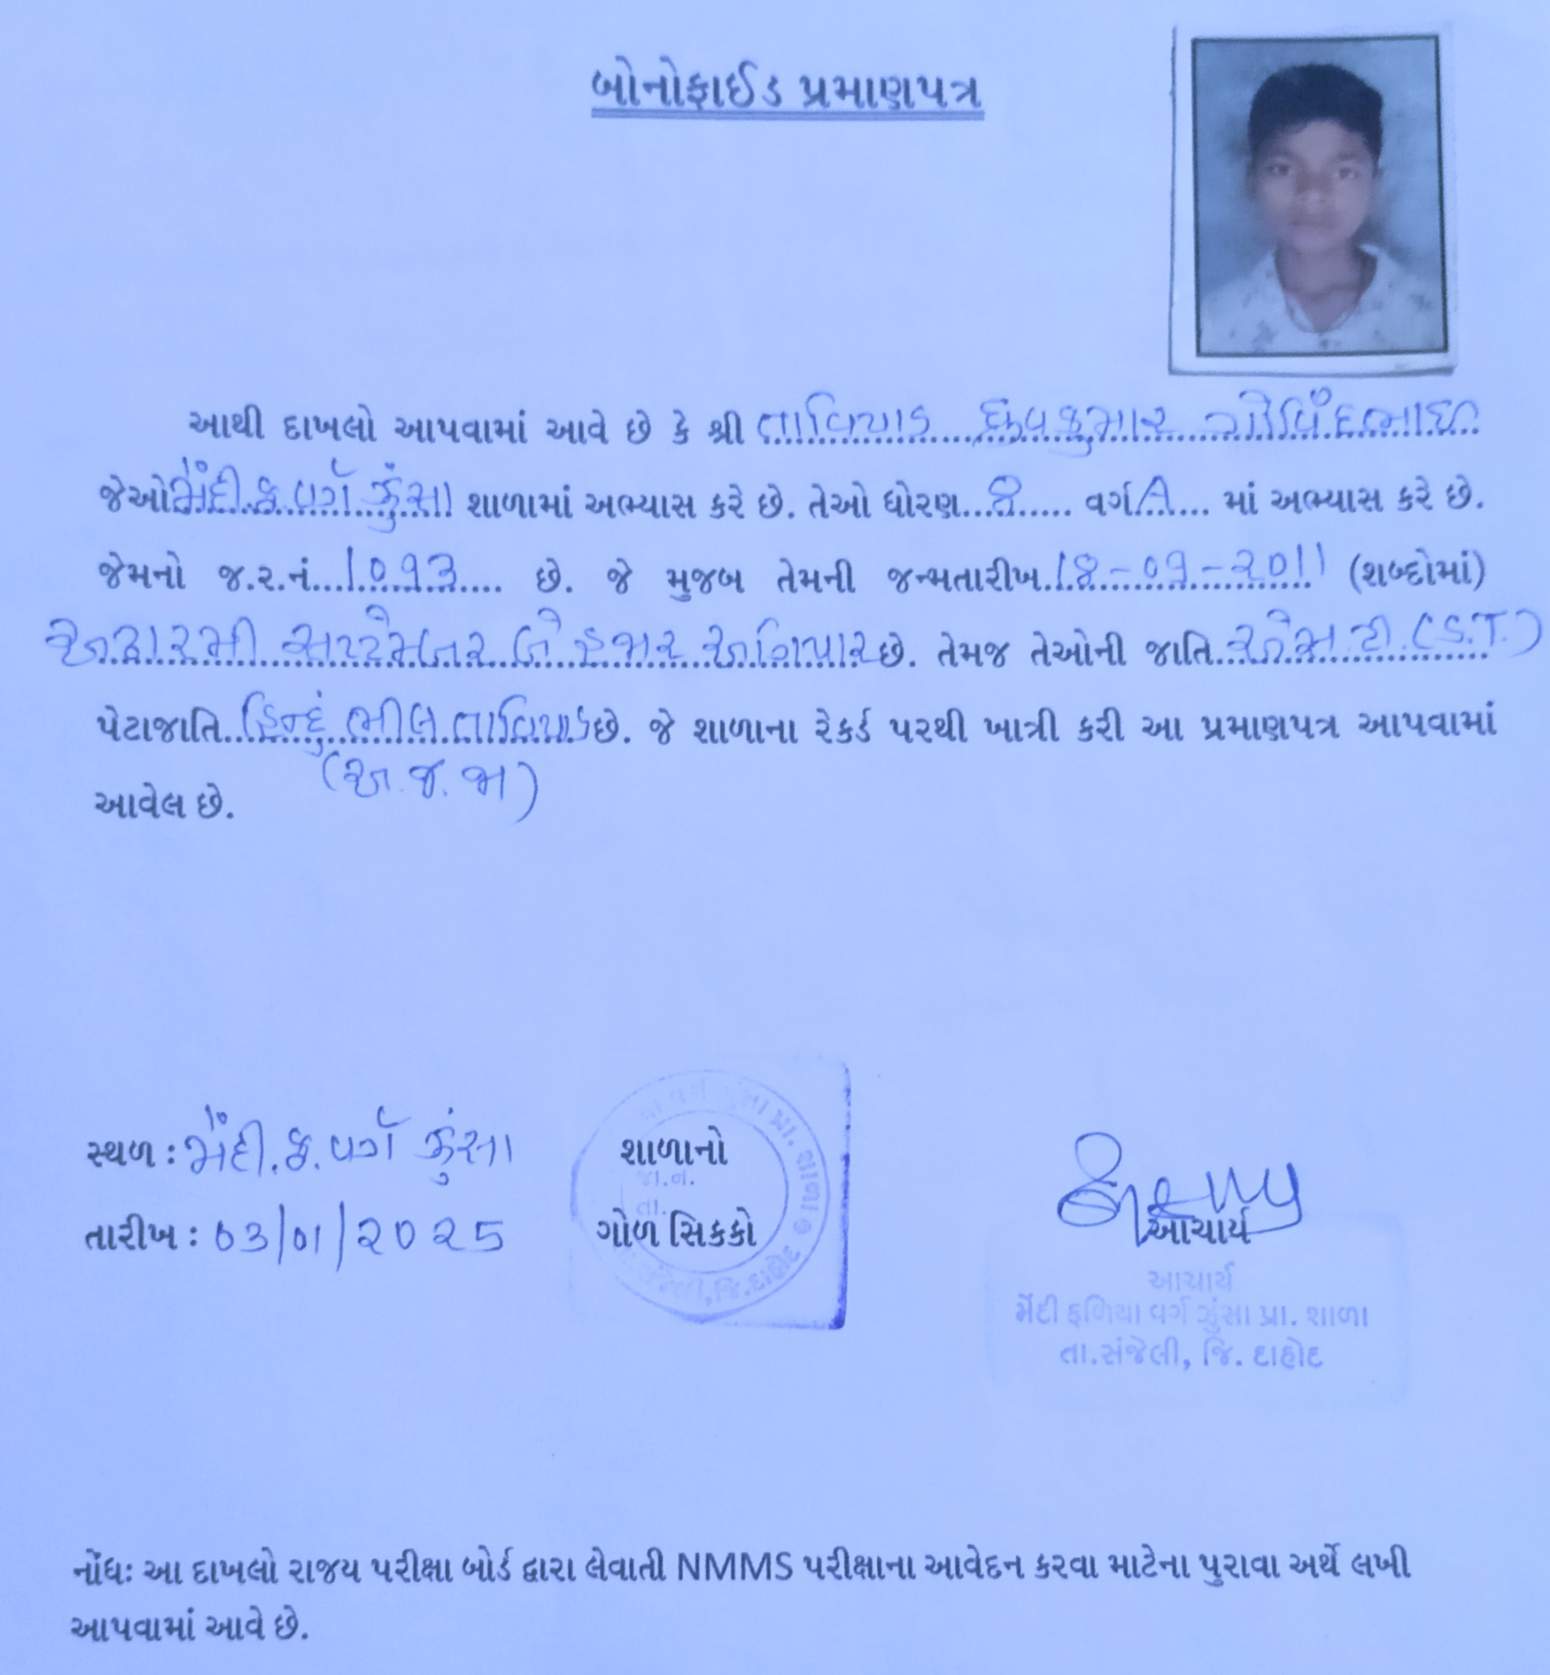 બોનોફાઈડ પ્રમાણપત્ર
આથી દાખલો આપવામાં આવે છે કે શ્રી તાવિયાડ ધ્રુવકુમાર ગોવિંદભાઇ
જેઓ મેંદી.ફ.વર્ગ ઝુંસા શાળામાં અભ્યાસ કરે છે. તેઓ ધોરણ...8..... વર્ગ.A.... માં અભ્યાસ કરે છે.
જેમનો જ.ર.નં...1093.... છે. જે મુજબ તેમની જન્મતારીખ.18-09-2011 (શબ્દોમાં)
અઢારમી સપ્ટેમ્બર બે હજાર અગિયાર છે. તેમજ તેઓની જાતિ...એસ.ટી.(S.T.)
પેટાજાતિ..હિન્દુ ભીલ તાવિયાડ છે. જે શાળાના રેકર્ડ પરથી ખાત્રી કરી આ પ્રમાણપત્ર આપવામાં
(અ.જ.જા)
આવેલ છે.
સ્થળ : મેંદી.ફ.વર્ગ ઝુંસા
તારીખ : 03/01/2025
શાળાનો
ગોળ સિકકો
આચાર્ય
આચાર્ય
મેંદી ફળિયા વર્ગ ઝુંસા પ્રા. શાળા
તા.સંજેલી, જિ. દાહોદ
નોંધઃ આ દાખલો રાજય પરીક્ષા બોર્ડ દ્વારા લેવાતી NMMS પરીક્ષાના આવેદન કરવા માટેના પુરાવા અર્થે લખી
આપવામાં આવે છે.